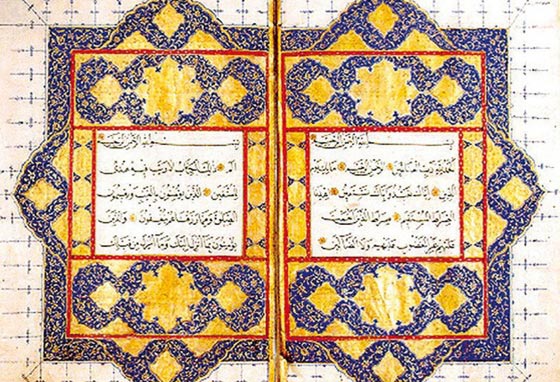 بسم الله الرحمن الرحيم
الحمد لله رب العالمين الرحمن الرحيم مالك يوم
الدين اياك نعبد واياك نستعين اهدنا
الصراط المستقيم صراط الذين انعمت
عليهم غير المغضوب عليهم ولا الضالين
بسم الله الرحمن الرحيم
الم ذلك الكتاب لا ريب فيه هدى
للمتقين الذين يؤمنون بالغيب ويقيمون
الصلوة ومما رزقناهم ينفقون والذين
يؤمنون بما انزل اليك وما انزل من قبلك